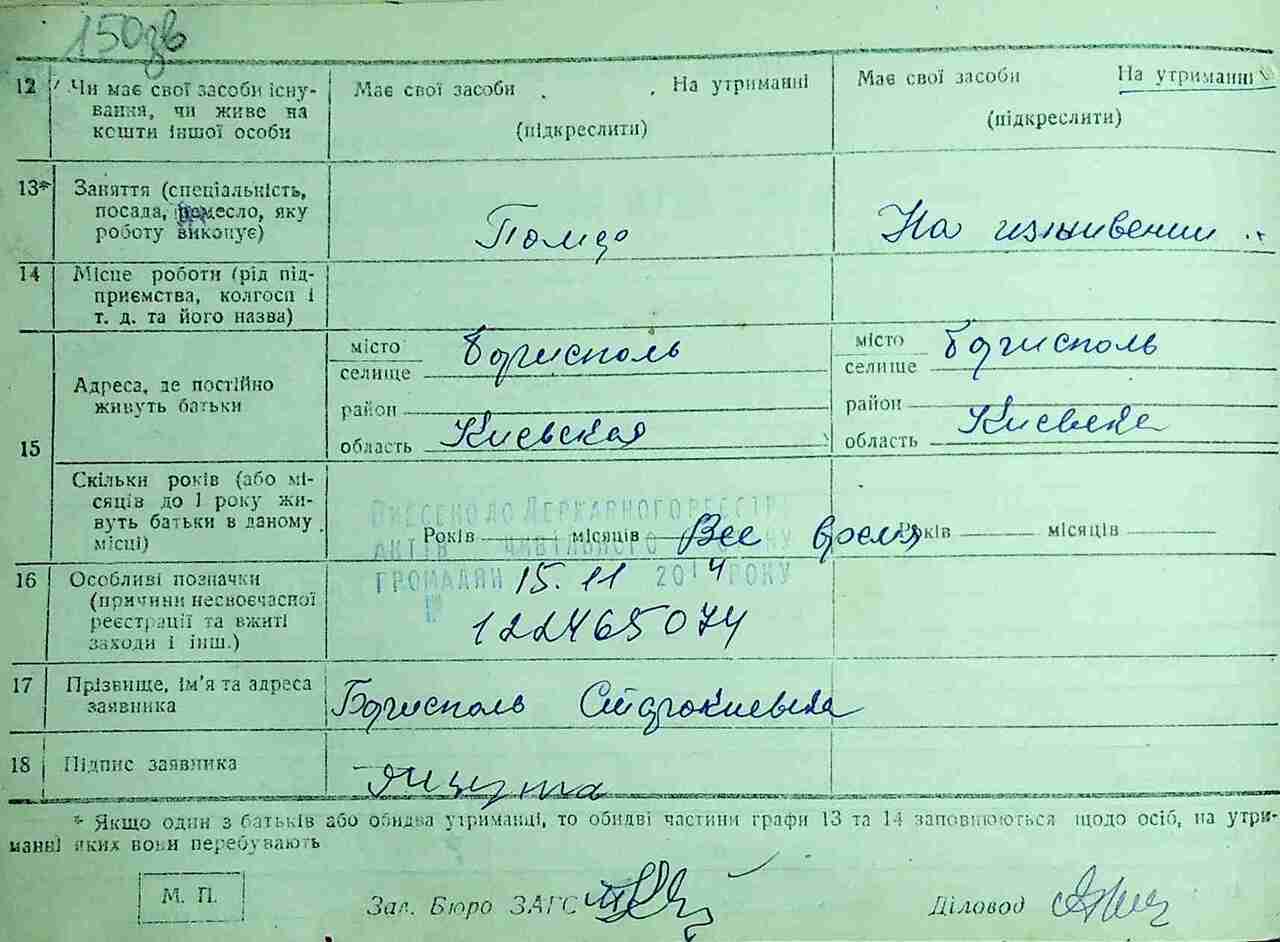 150зв
12 Чи має свої засоби існу-
вання, чи живе на
кошти іншої особи
Має свої засоби На утриманні
(підкреслити)
Має свої засоби На утриманні
(підкреслити)
13* Заняття (спеціальність,
посада, ремесло, яку
роботу виконує)
На иждивении
14 Місце роботи (рід під-
приємства, колгосп і
т. д. та його назва)
15
Адреса, де постійно
живуть батьки
місто Борисполь
селище
район
область Киевская
місто Борисполь
селище
район
область Киевска
Скільки років (або мі-
сяців до 1 року жи-
вуть батьки в даному
місці)
Років місяців Все время
Років місяців
ВНЕСЕНО ДО ДЕРЖАВНОГО РЕЄСТРУ
АКТІВ ЦИВІЛЬНОГО СТАНУ
ГРОМАДЯН 15.11 2014 РОКУ
№
122465074
16 Особливі позначки
(причини несвоєчасної
реєстрації та вжиті
заходи і інш.)
17 Прізвище, ім'я та адреса
заявника
Борисполь Старокиевска
18 Підпис заявника
* Якщо один з батьків або обидва утриманці, то обидві частини графи 13 та 14 заповнюються щодо осіб, на утри-
манні яких вони перебувають
М. П.
Зав. Бюро ЗАГС
Діловод